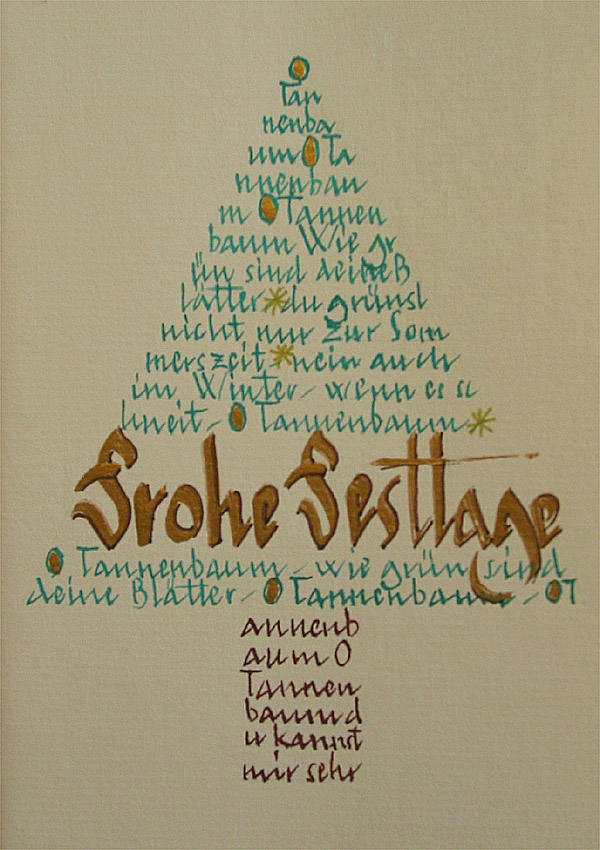 O
Tan
nenba
um O Ta
nnenbau
m O Tannen
baum Wie gr
ün sind deineB
lätter * du grünst
nicht nur zur Som
merszeit * nein auch
im Winter - wenn es sc
hneit - O Tannenbaum *
Frohe Festtage
O Tannenbaum - wie grün sind
deine Blätter - O Tannenbaum - OT
annenb
aum O
Tannen
baum d
u kannst
mir sehr